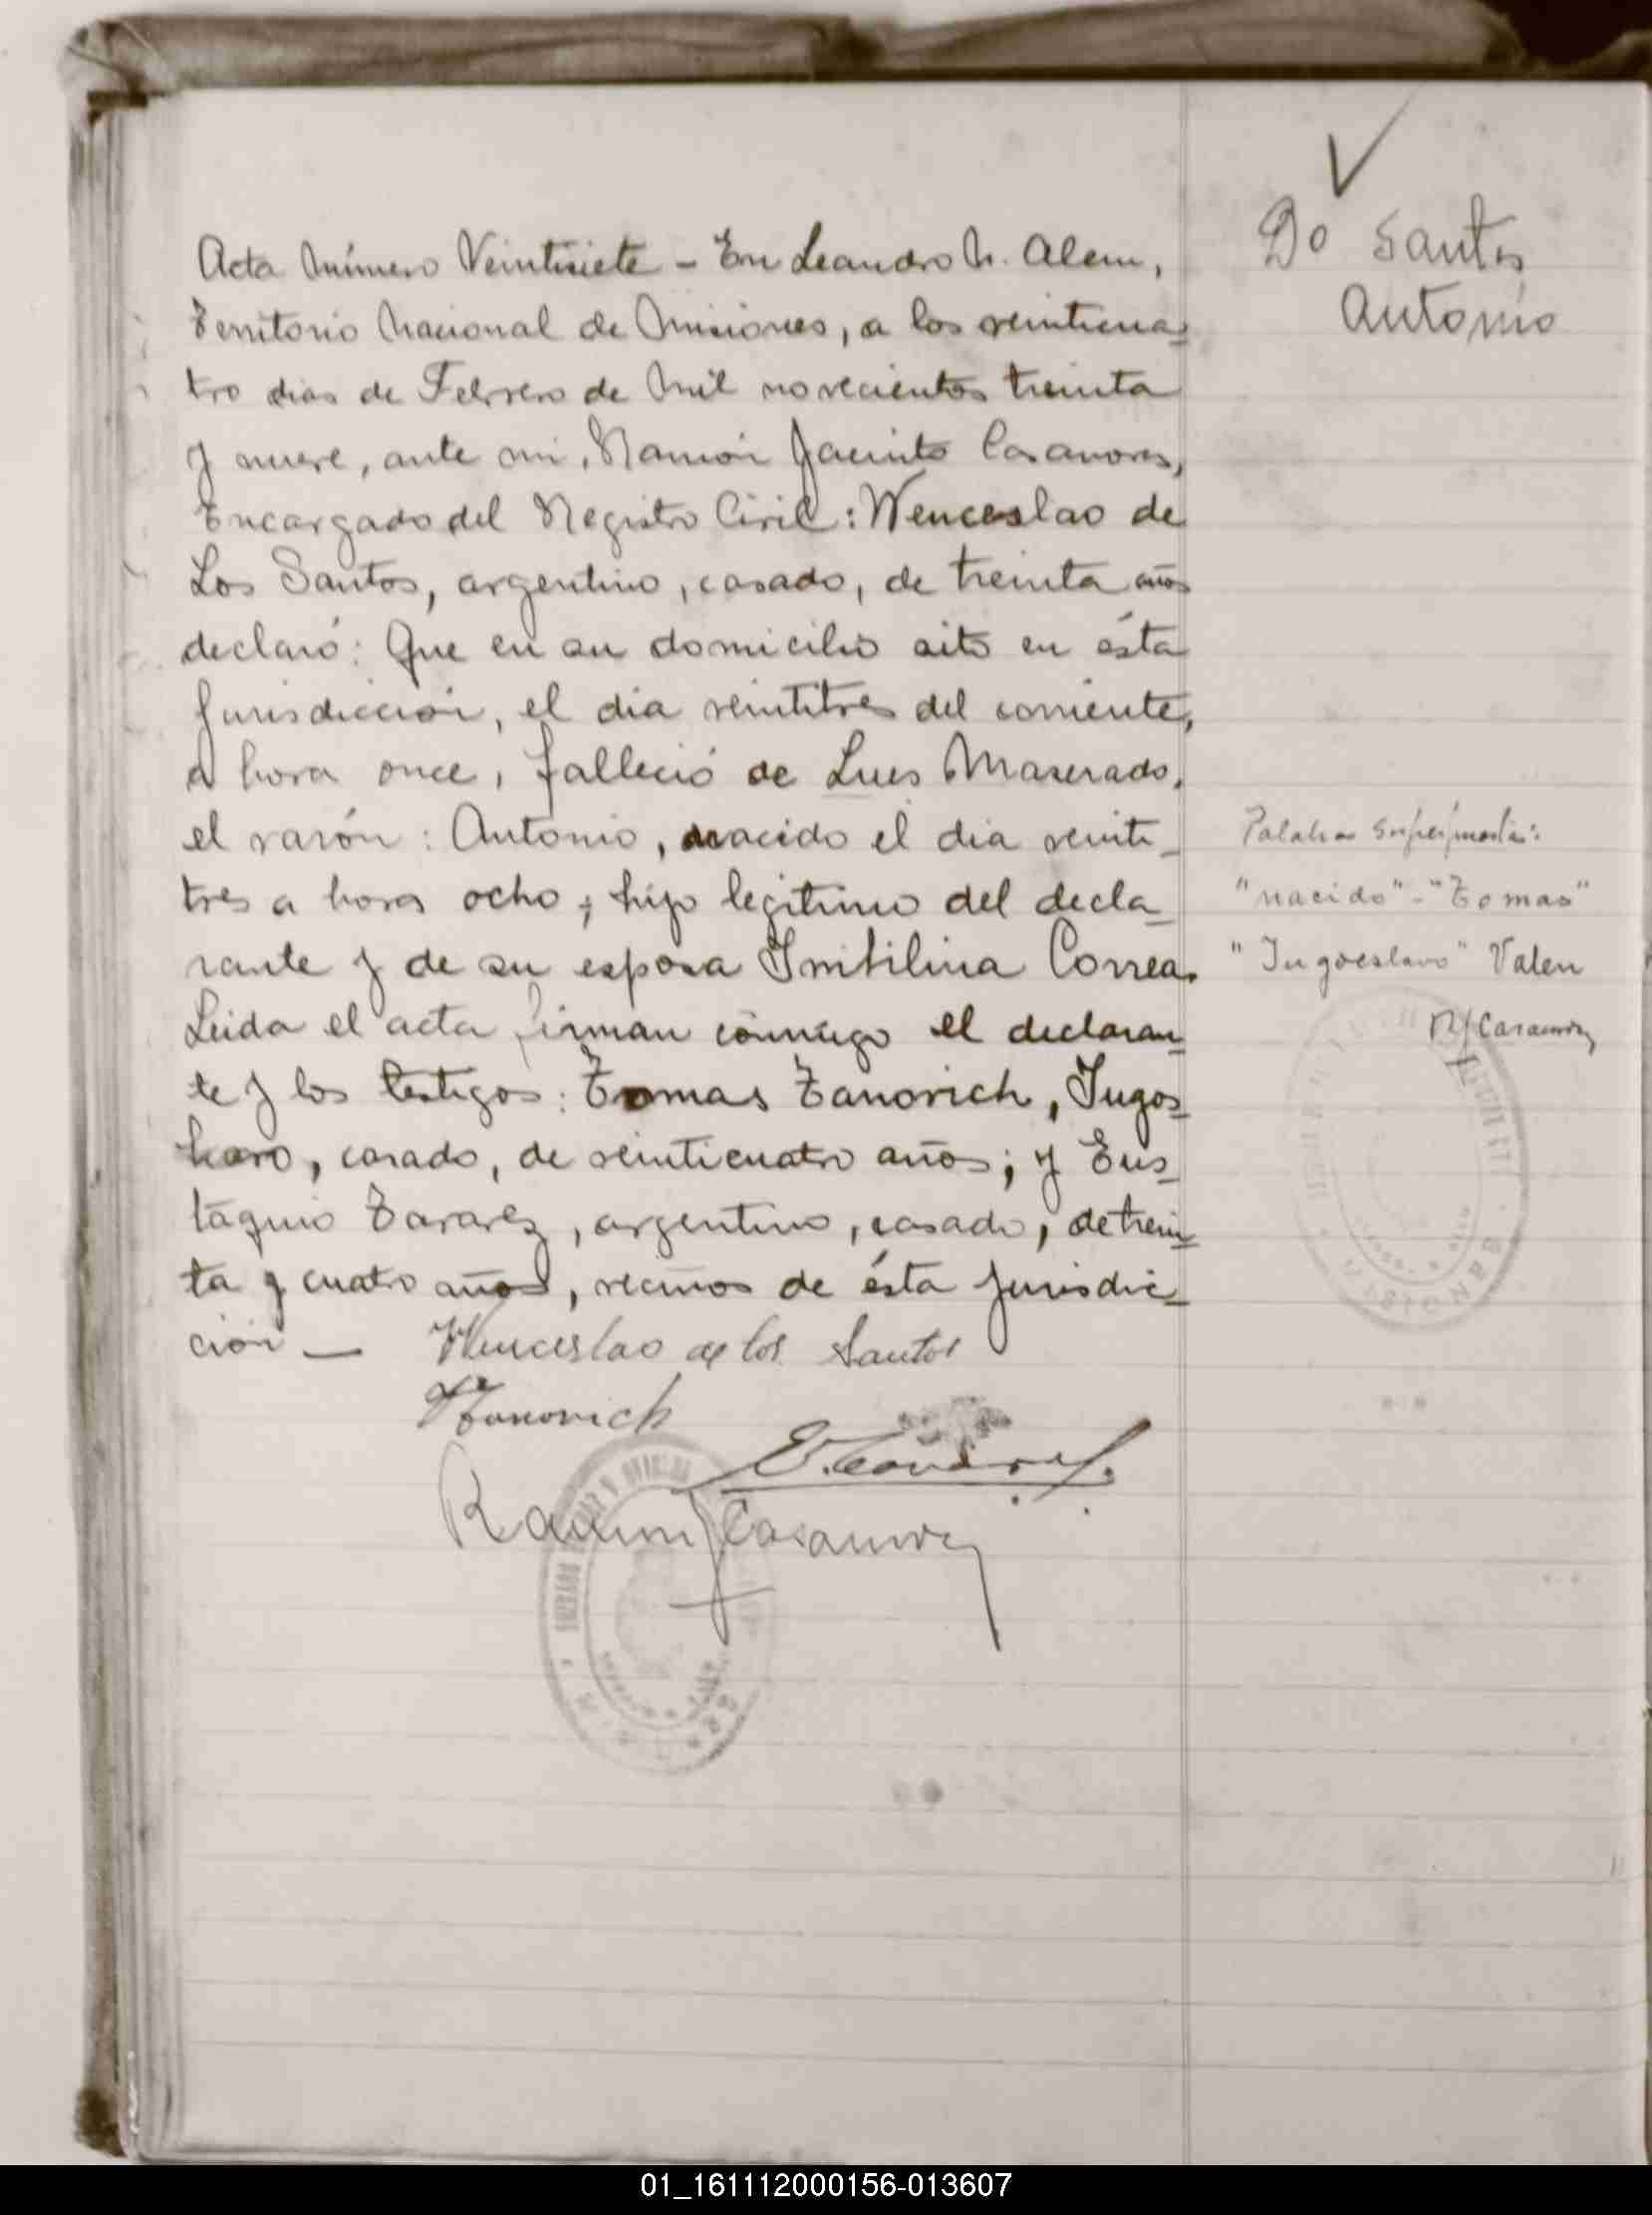 Do Santos
Antonio
Acta Número Veintisiete - En Leandro N. Alem,
Territorio Nacional de Misiones, a los veinticua_
tro dias de Febrero de Mil novecientos treinta
y nueve, ante mi, Ramón Jacinto Casanoves,
Encargado del Registro Civil: Wenceslao de
Los Santos, argentino, casado, de treinta años
declaró: Que en su domicilio sito en ésta
Jurisdicción, el dia veintitres del corriente,
a hora once, falleció de Lues
el varón: Antonio, nacido el dia veinti_
tres a hora ocho; hijo legitimo del decla_
rante y de su esposa Correa.
Leida el acta firman conmigo el declaran_
te y los testigos: Tomas Zanovich, Yugos_
lavo, casado, de veinticuatro años; y Eus_
taquio Tavarez, argentino, casado, de trein_
ta y cuatro años, vecinos de ésta Jurisdic_
ción — Wenceslao de los Santos
Zanovich
E. Tavarez.
Ramon J Casanoves
Palabras superpuestas:
"nacido" - "Tomas"
"Jugoeslavo" Valen
R J Casanoves
MISIONES
01_161112000156-013607